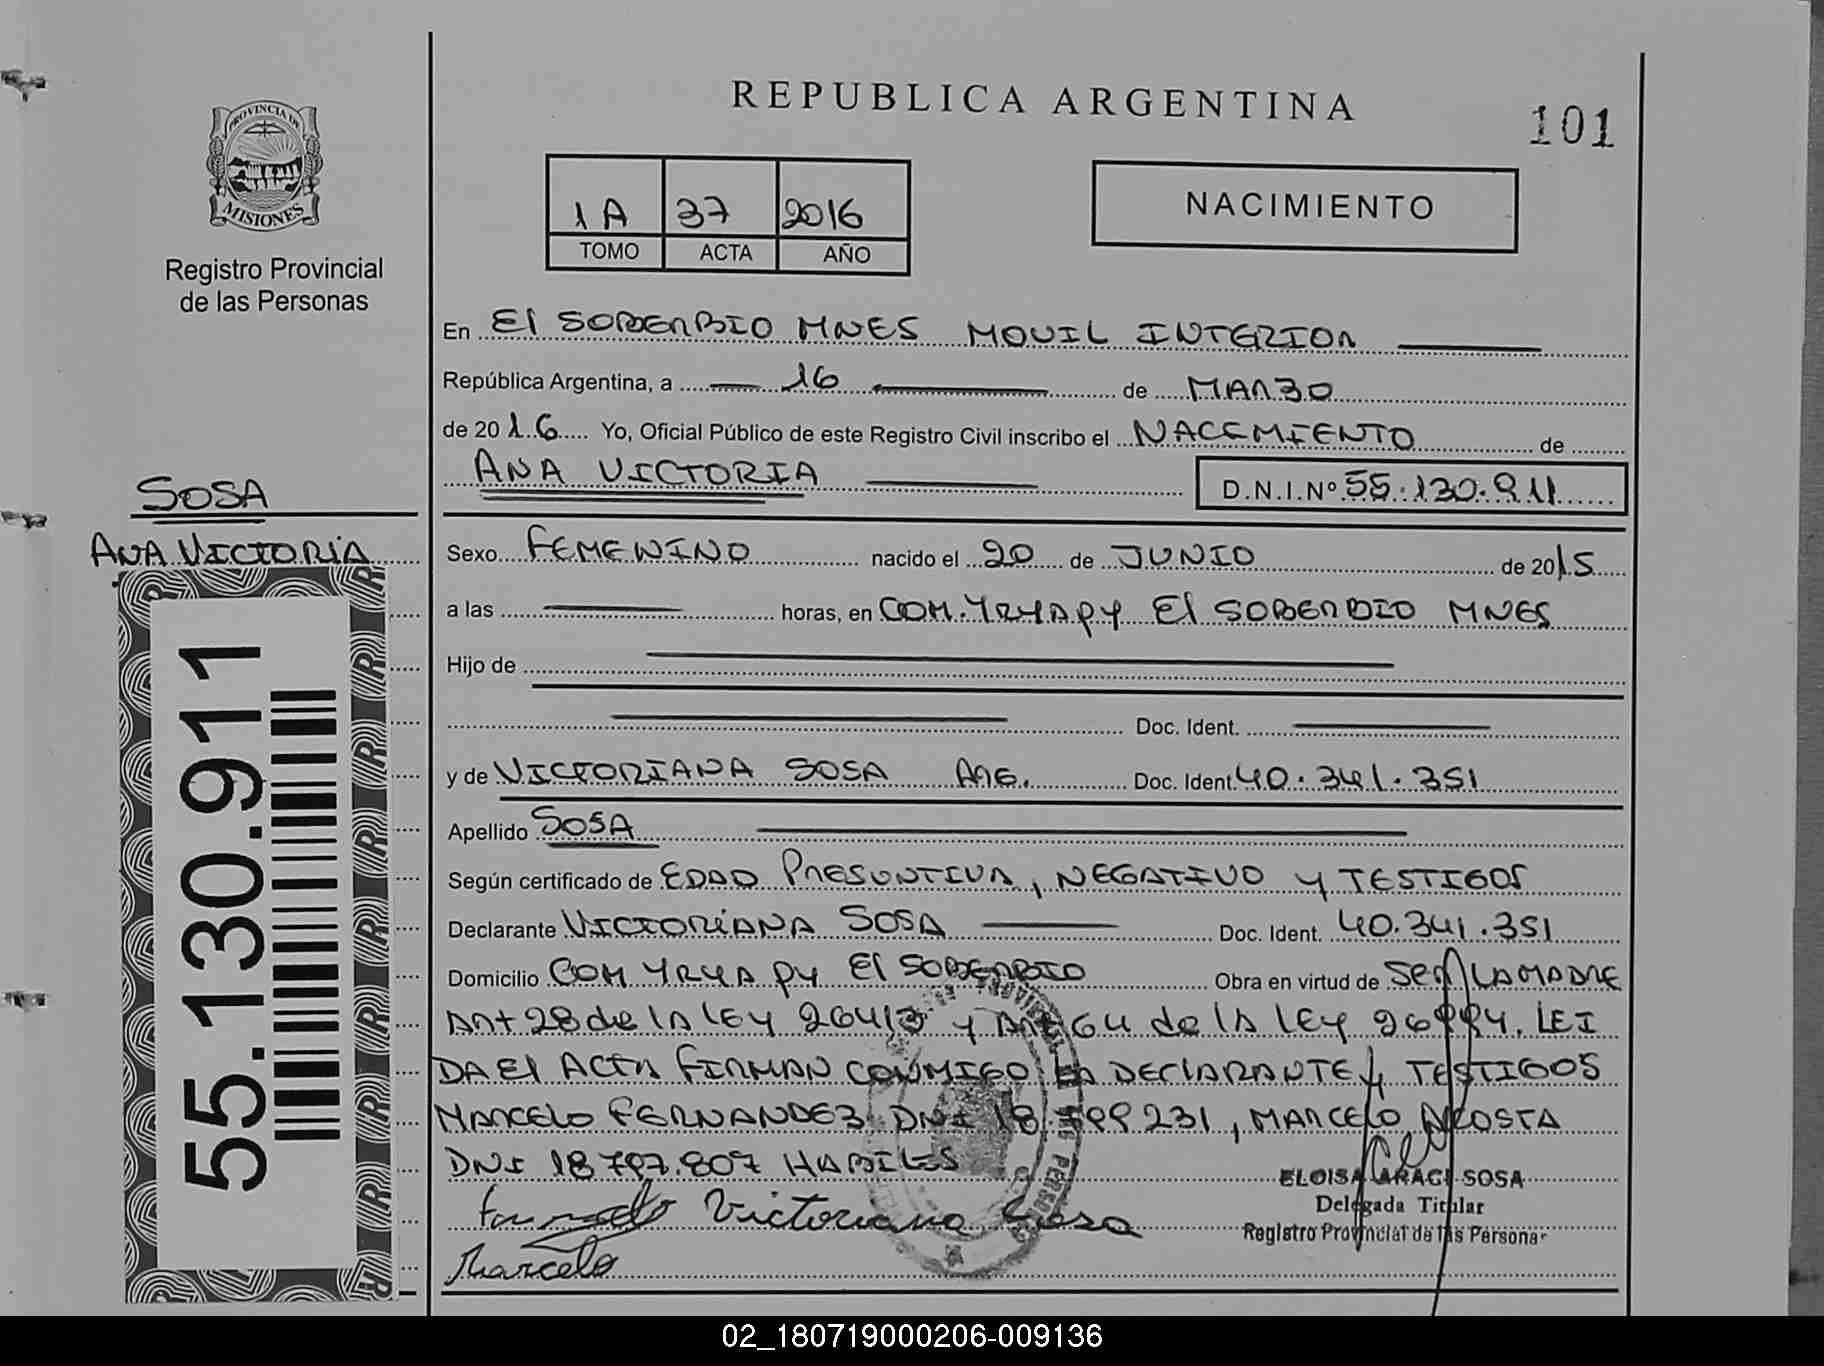 REPUBLICA ARGENTINA
101
PROVINCIA DE
MISIONES
Registro Provincial
de las Personas
1A 37 2016
TOMO ACTA AÑO
NACIMIENTO
En El SOBERBIO MNES MOVIL INTERIOR
República Argentina, a 16 de MARZO
de 2016 Yo, Oficial Público de este Registro Civil inscribo el NACIMIENTO de
ANA VICTORIA D.N.I.Nº 55.130.911
SOSA
ANA VICTORIA
Sexo FEMENINO nacido el 20 de JUNIO de 2015
a las horas, en COM. YRYAPY El SOBERBIO MNES
Hijo de
Doc. Ident.
y de VICTORIANA SOSA ARG. Doc. Ident. 40.341.351
Apellido SOSA
Según certificado de EDAD PRESUNTIVA, NEGATIVO y TESTIGOS
Declarante VICTORIANA SOSA Doc. Ident. 40.341.351
Domicilio COM YRYAPY El SOBERBIO Obra en virtud de SER LA MADRE
ART 28 de lA lEY 26413 y ART 64 de lA lEY 26994. LEI
DA El ACTA FIRMAN CONMIGO LA DECLARANTE y TESTIGOS
MARCELO FERNANDEZ DNI 18 799 231, MARCELO ACOSTA
DNI 18797.807 HABILES
ELOISA ARACI SOSA
Delegada Titular
Registro Provincial de las Personas
Victoriana Sosa
Marcelo
55.130.911
02_180719000206-009136